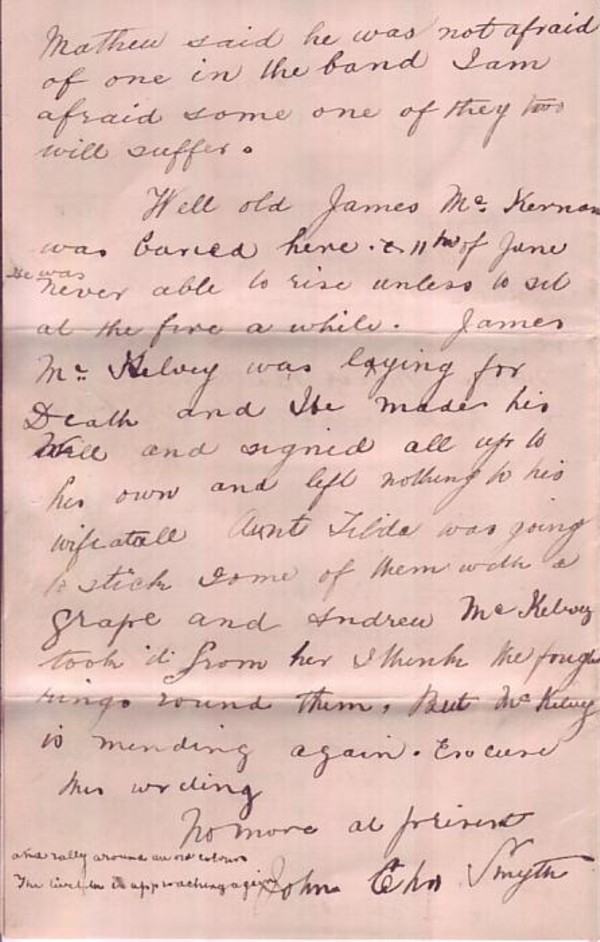 Mathew said he was not afraid
of one in the band I am
afraid some one of they two
will suffer.
Well old James Mc Kernan
was buried here 11th of June
He was
never able to rise unless to sit
at the fire a while. James
Mc Kelvey was laying for
Death and He made his
Will and signed all up to
his own and left nothing to his
wife atall Aunt Tilda was going
to stick some of them with a
grape and Andrew Mc Kelvey
took it from her I think the fought
rings round them. But Mc Kelvey
is mending again. Excuse
this writing
No more at present
and rally around an old colours
The twelfth is approaching again
John Chas Smyth